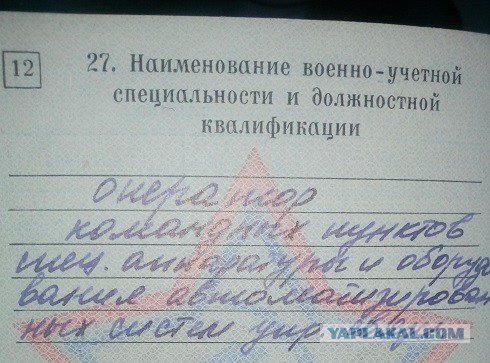 12
27. Наименование военно-учетной
специальности и должностной
квалификации
оператор
командных пунктов
спец. аппаратуры и оборудо
вания автоматизирован
ных систем упр
YAPLAKAL.COM